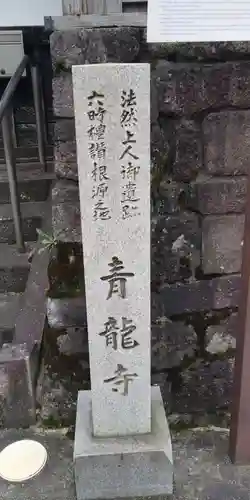 法然上人御遺跡
六時禮讃根源之地
青龍寺